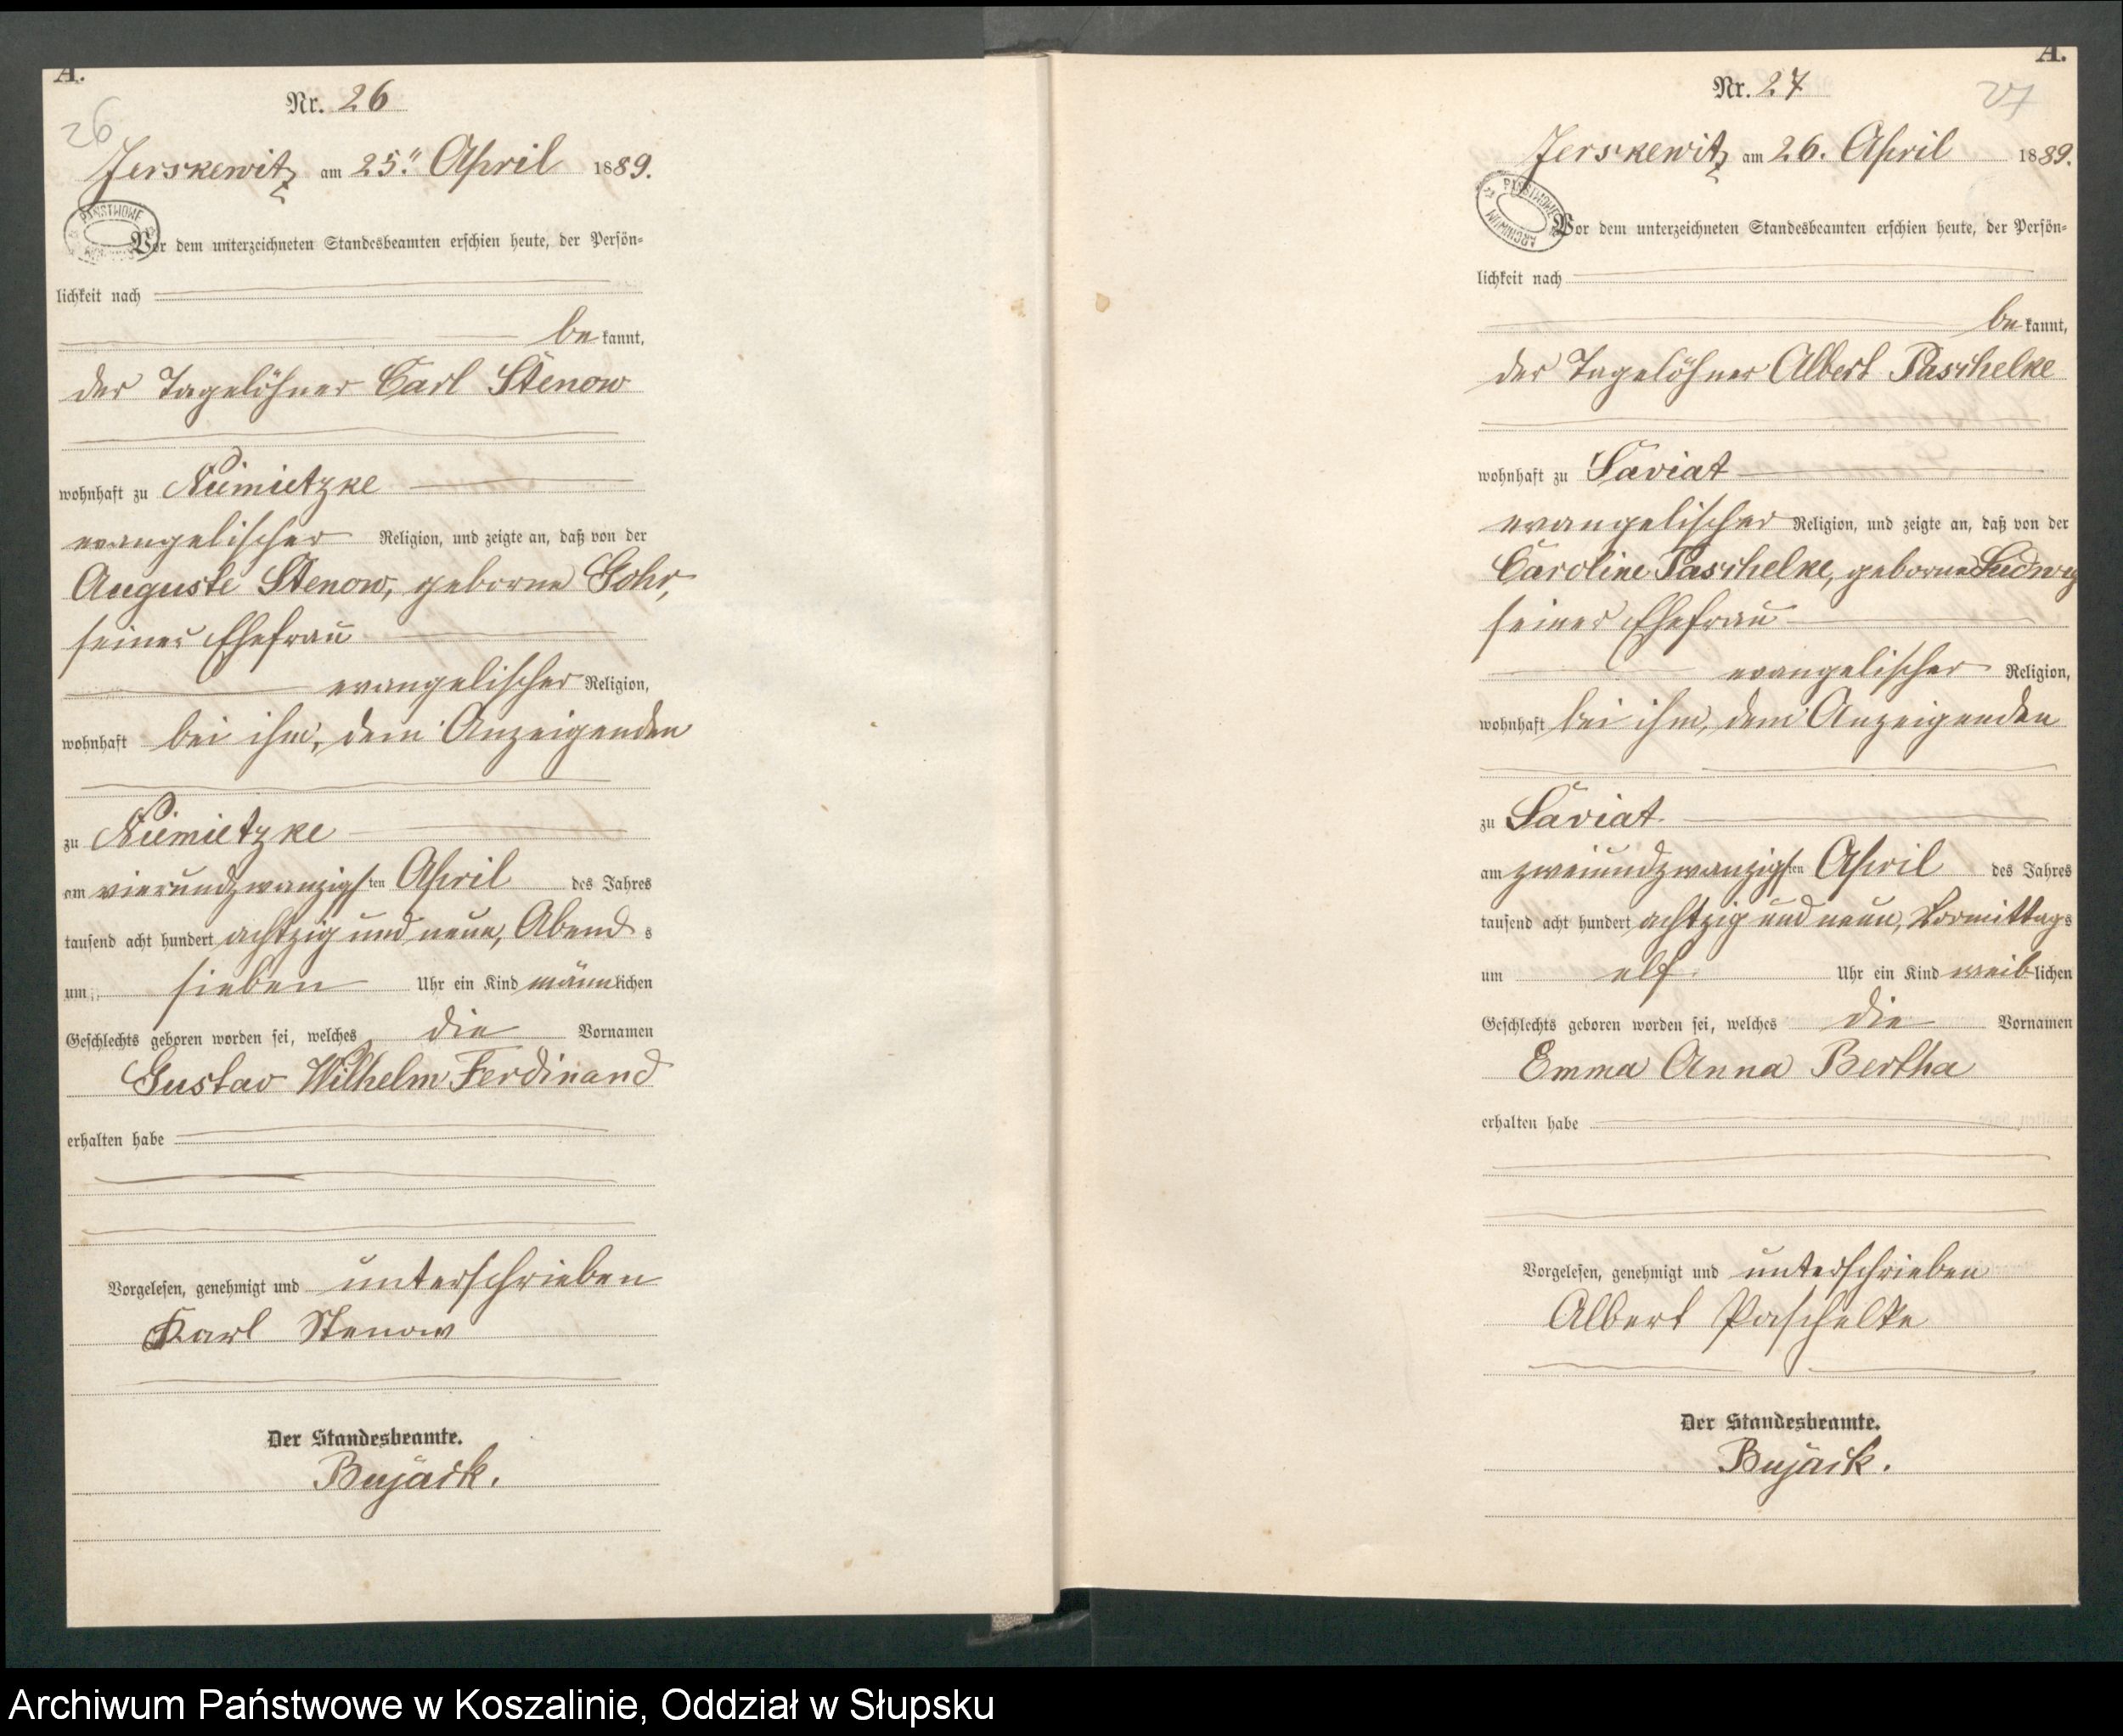 A.
26
Nr. 26
Jerskewitz am 25ten April 1889.
PAŃSTWOWE
Vor dem unterzeichneten Standesbeamten erschien heute, der Persön=
lichkeit nach
be kannt,
der Tagelöhner Carl Stenow
wohnhaft zu Niemietzke
evangelischer Religion, und zeigte an, daß von der
Auguste Stenow, geborne Gohr,
seiner Ehefrau
evangelischer Religion,
wohnhaft bei ihm, dem Anzeigenden
zu Niemietzke
am vierundzwanzigsten April des Jahres
tausend acht hundert achtzig und neun, Abends
um sieben Uhr ein Kind männlichen
Geschlechts geboren worden sei, welches die Vornamen
Gustav Wilhelm Ferdinand
erhalten habe
Vorgelesen, genehmigt und unterschrieben
Karl Stenow
Der Standesbeamte.
Bujack.
A.
Nr. 27
27
Jerskewitz am 26. April 1889.
PAŃSTWOWE ARCHIWUM
Vor dem unterzeichneten Standesbeamten erschien heute, der Persön=
lichkeit nach
be kannt,
der Tagelöhner Albert Paschelke
wohnhaft zu Saviat
evangelischer Religion, und zeigte an, daß von der
Caroline Paschelke, geborne Ludwig
seiner Ehefrau
evangelischer Religion,
wohnhaft bei ihm, dem Anzeigenden
zu Saviat
am zweiundzwanzigsten April des Jahres
tausend acht hundert achtzig und neun, Vormittags
um elf Uhr ein Kind weiblichen
Geschlechts geboren worden sei, welches die Vornamen
Emma Anna Bertha
erhalten habe
Vorgelesen, genehmigt und unterschrieben
Albert Paschelke
Der Standesbeamte.
Bujack.
Archiwum Państwowe w Koszalinie, Oddział w Słupsku